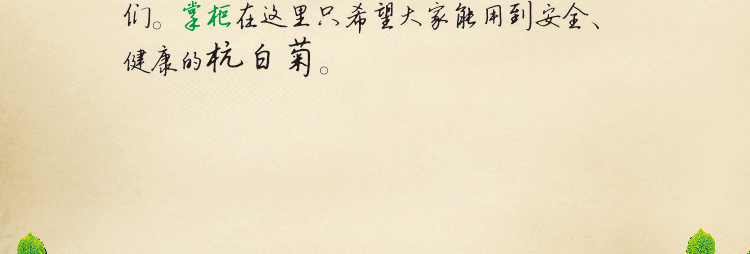 们。掌柜在这里只希望大家能用到安全、
健康的杭白菊。